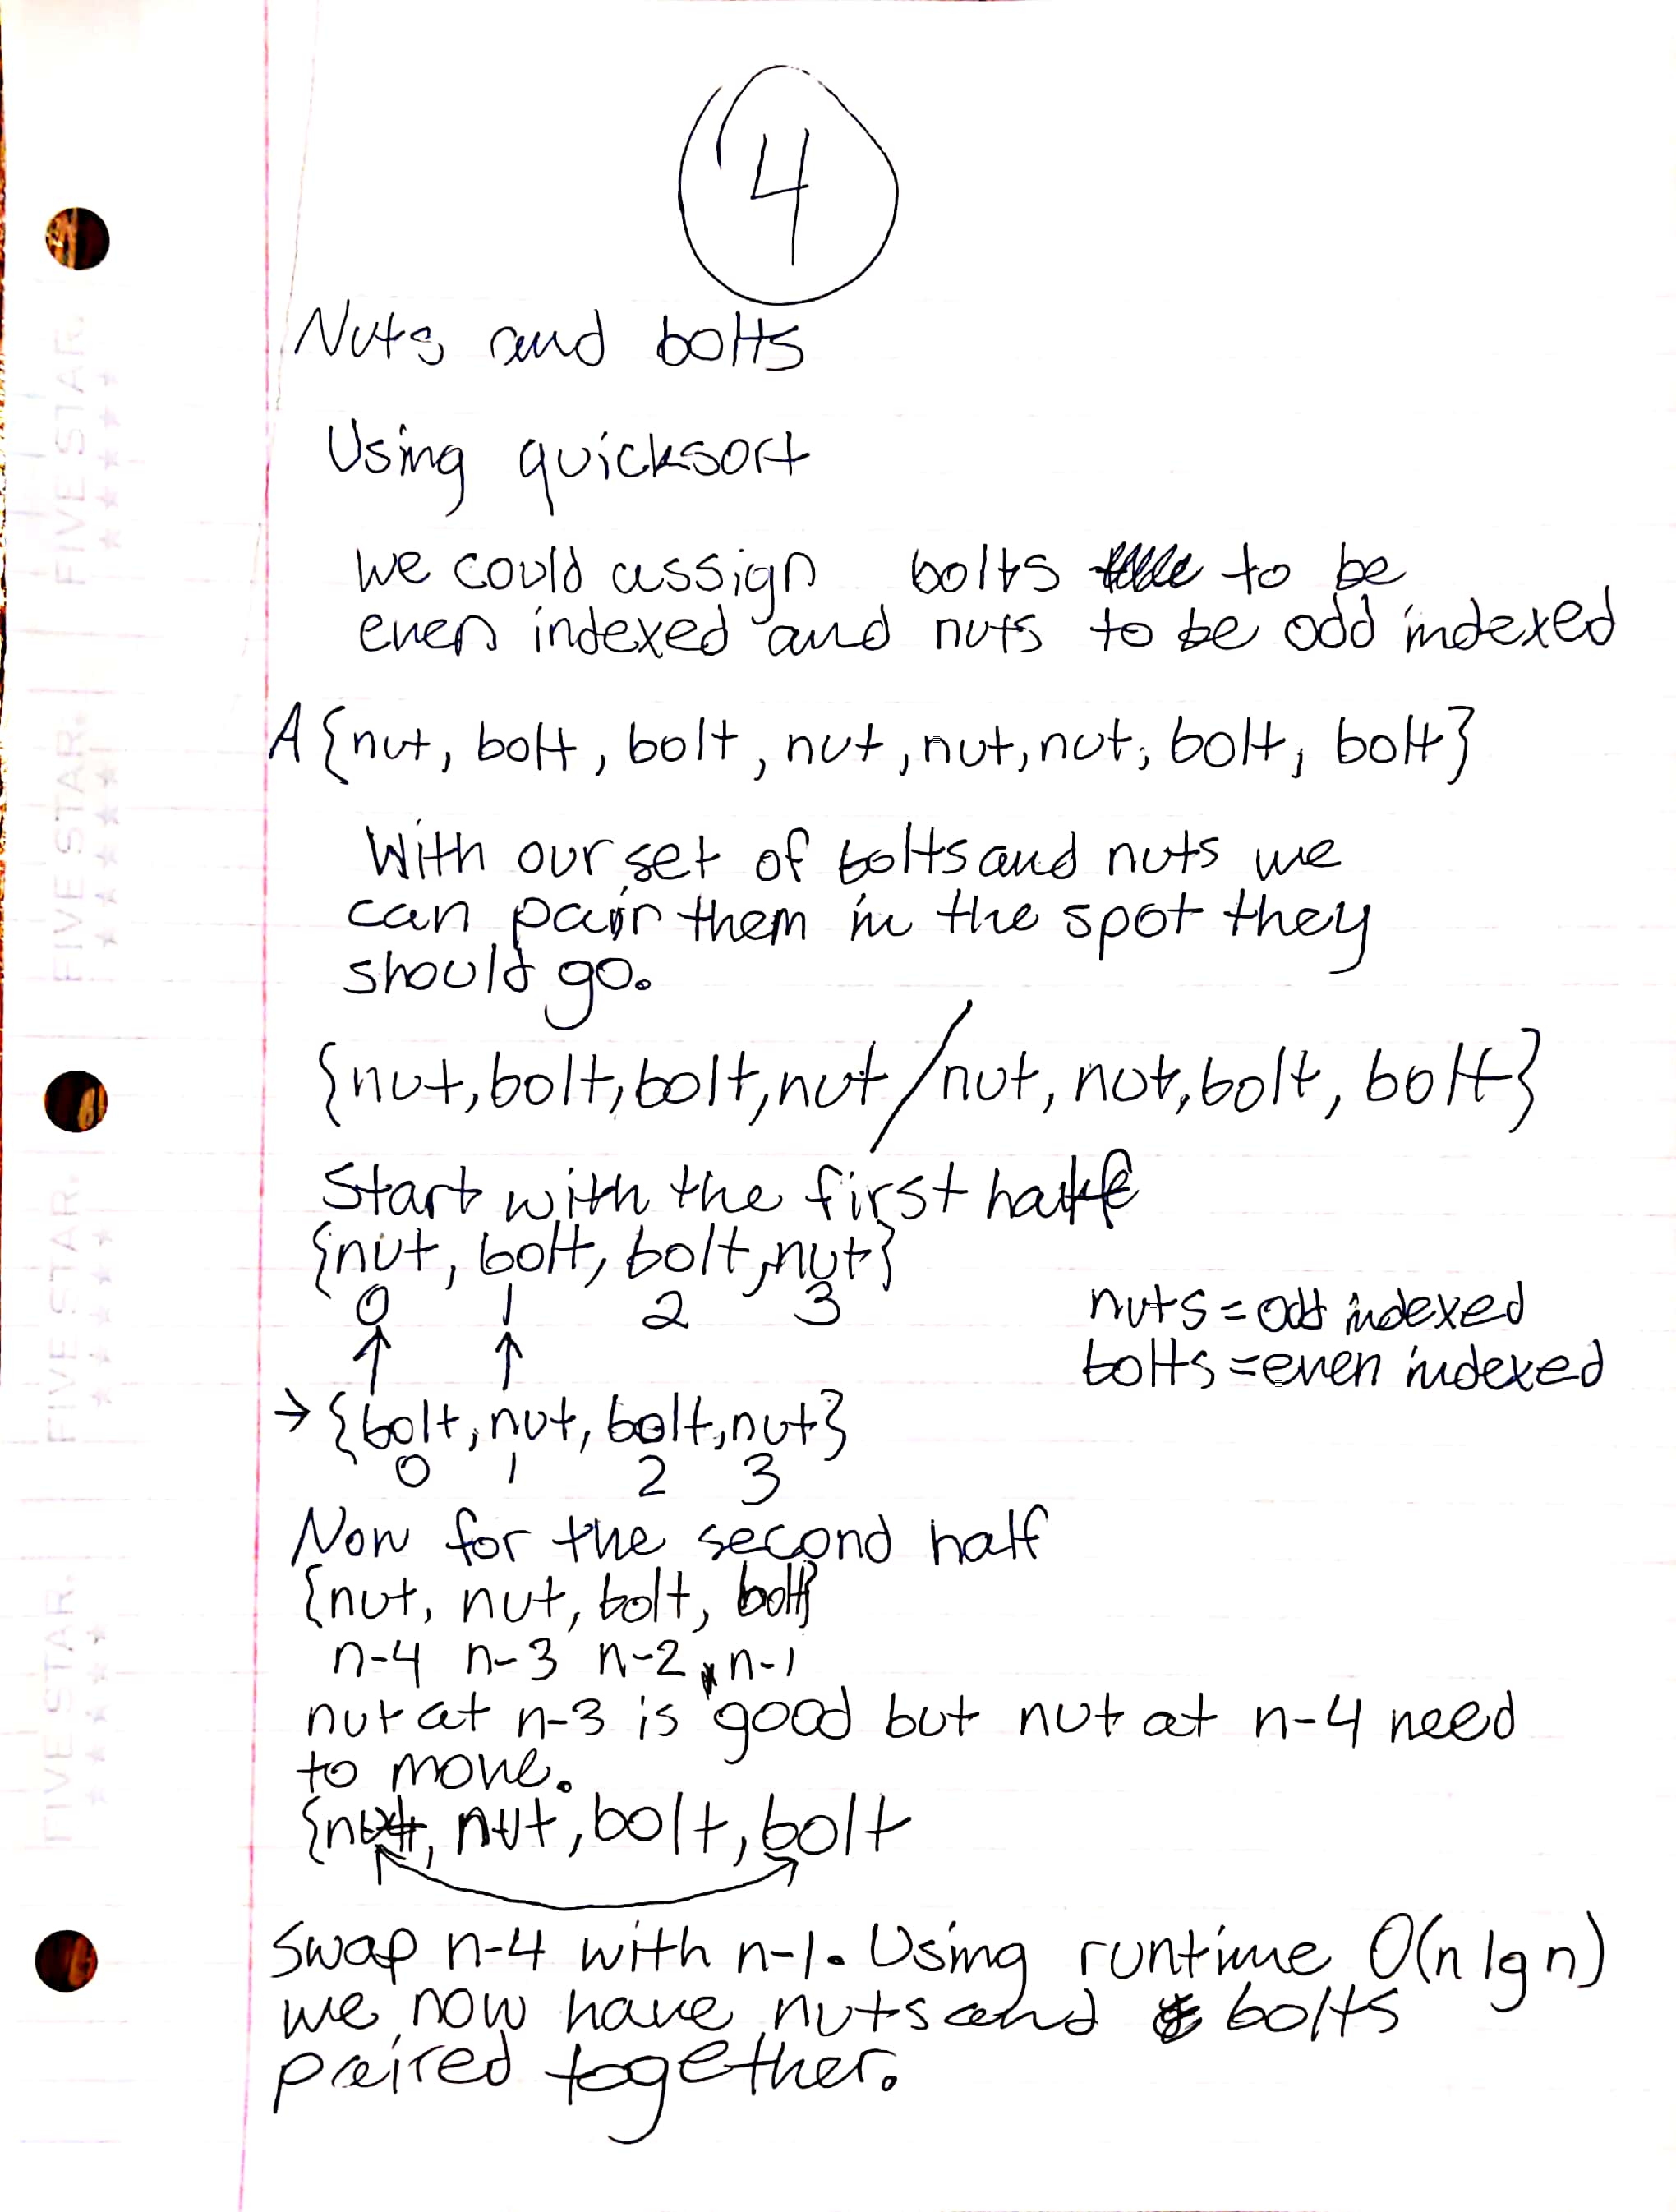 4
Nuts and bolts
Using quicksort
we could assign bolts to be
even indexed and nuts to be odd indexed
A {nut, bolt, bolt, nut, nut, nut, bolt, bolt}
With our set of bolts and nuts we
can pair them in the spot they
should go.
{nut, bolt, bolt, nut / nut, nut, bolt, bolt}
Start with the first half
{nut, bolt, bolt, nut}
0 1 2 3
nuts = odd indexed
bolts = even indexed
→ {bolt, nut, bolt, nut}
0 1 2 3
Now for the second half
{nut, nut, bolt, bolt}
n-4 n-3 n-2 n-1
nut at n-3 is good but nut at n-4 need
to move.
{nut, nut, bolt, bolt
Swap n-4 with n-1. Using runtime O(n lg n)
we now have nuts and bolts
paired together.
FIVE STAR.
FIVE STAR.
FIVE STAR.
FIVE STAR.